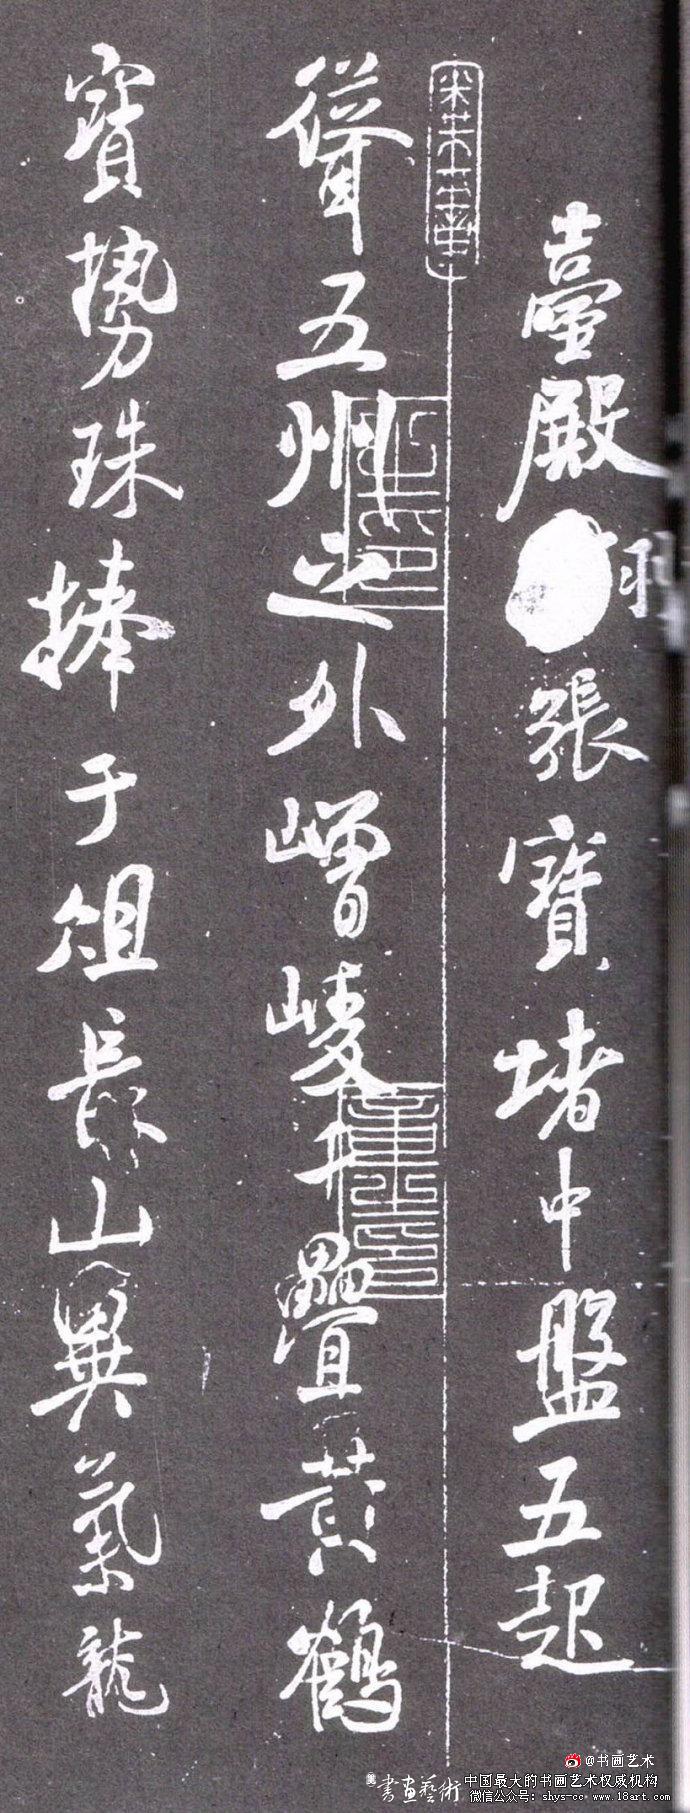 臺殿羽張寶堵中盤五起
聳五州之外嶒崚千疊黃鶴
寶勢珠捧于俎長山異氣龍
@书画艺术
書画藝術 中国最大的书画艺术权威机构
微信公众号：shys-cc www.18art.com